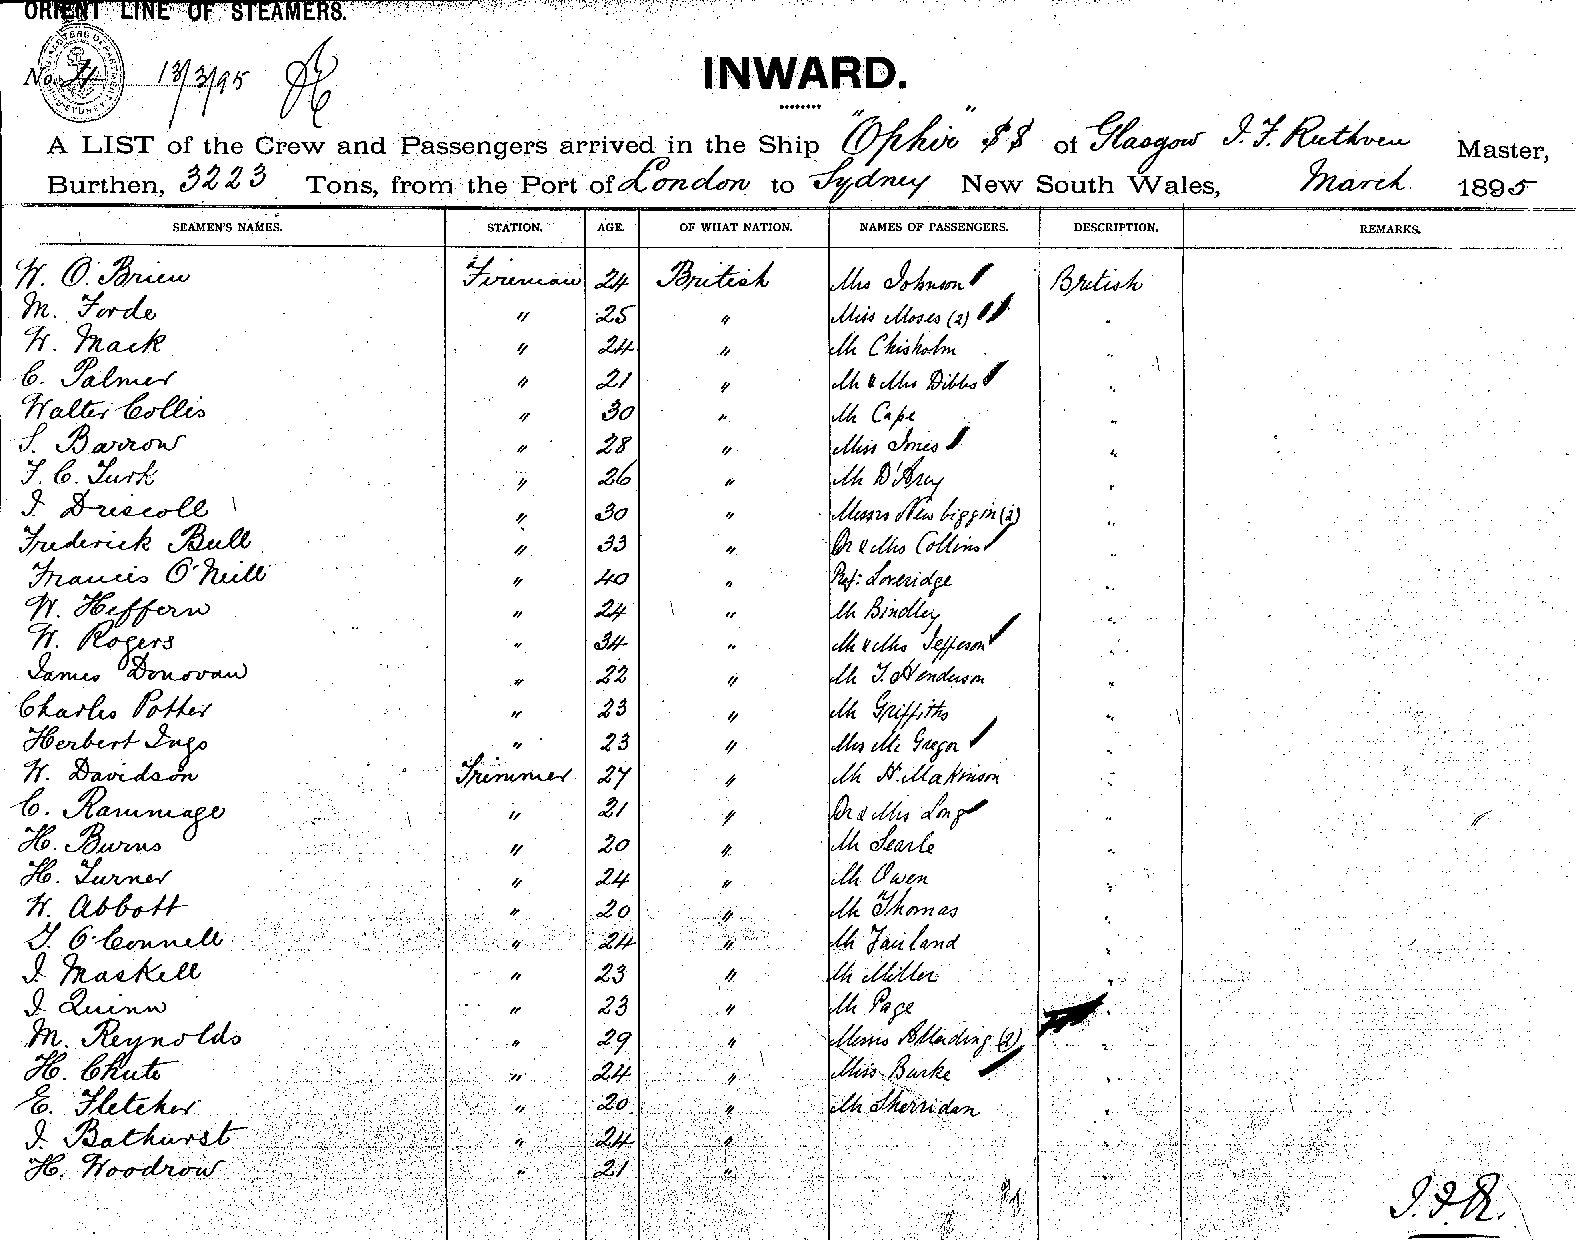 ORIENT LINE OF STEAMERS.
No. 13/3/95
INWARD.
A LIST of the Crew and Passengers arrived in the Ship "Ophir" SS of Glasgow J. F. Ruthven Master,
Burthen, 3223 Tons, from the Port of London to Sydney New South Wales, March 1895
SEAMEN'S NAMES. STATION. AGE. OF WHAT NATION. NAMES OF PASSENGERS. DESCRIPTION. REMARKS.
W. O'Brien Fireman 24 British Mrs Johnson British
M. Forde " 25 " Miss Moses (2) "
W. Mack " 24 " Mr Chisholm "
C. Palmer " 21 " Mr & Mrs Dibbs "
Walter Collis " 30 " Mr Cape "
S. Barrow " 28 " Miss Innes "
F. C. Turk " 26 " Mr D'Arcy "
J. Driscoll " 30 " Messrs Newbiggin (2) "
Frederick Bull " 33 " Dr & Mrs Collins "
Francis O'Neill " 40 " Prof: Loveridge "
W. Heffern " 24 " Mr Bindley "
W. Rogers " 34 " Mr & Mrs Jefferson "
James Donovan " 22 " Mr T. Henderson "
Charles Potter " 23 " Mr Griffiths "
Herbert Ings " 23 " Mrs Mc Gregor "
W. Davidson Trimmer 27 " Mr H. Makinson "
C. Rammage " 21 " Dr & Mrs Long "
H. Burns " 20 " Mr Searle "
H. Turner " 24 " Mr Owen "
W. Abbott " 20 " Mr Thomas "
T. O'Connell " 24 " Mr Fairland "
J. Maskell " 23 " Mr Miller "
J. Quinn " 23 " Mr Page "
M. Reynolds " 29 " Messrs (2) "
H. Chute " 24 " Miss Burke "
E. Fletcher " 20 " Mr Sherridan "
J. Bathurst " 24 " "
H. Woodrow " 21 "
J.F.R.